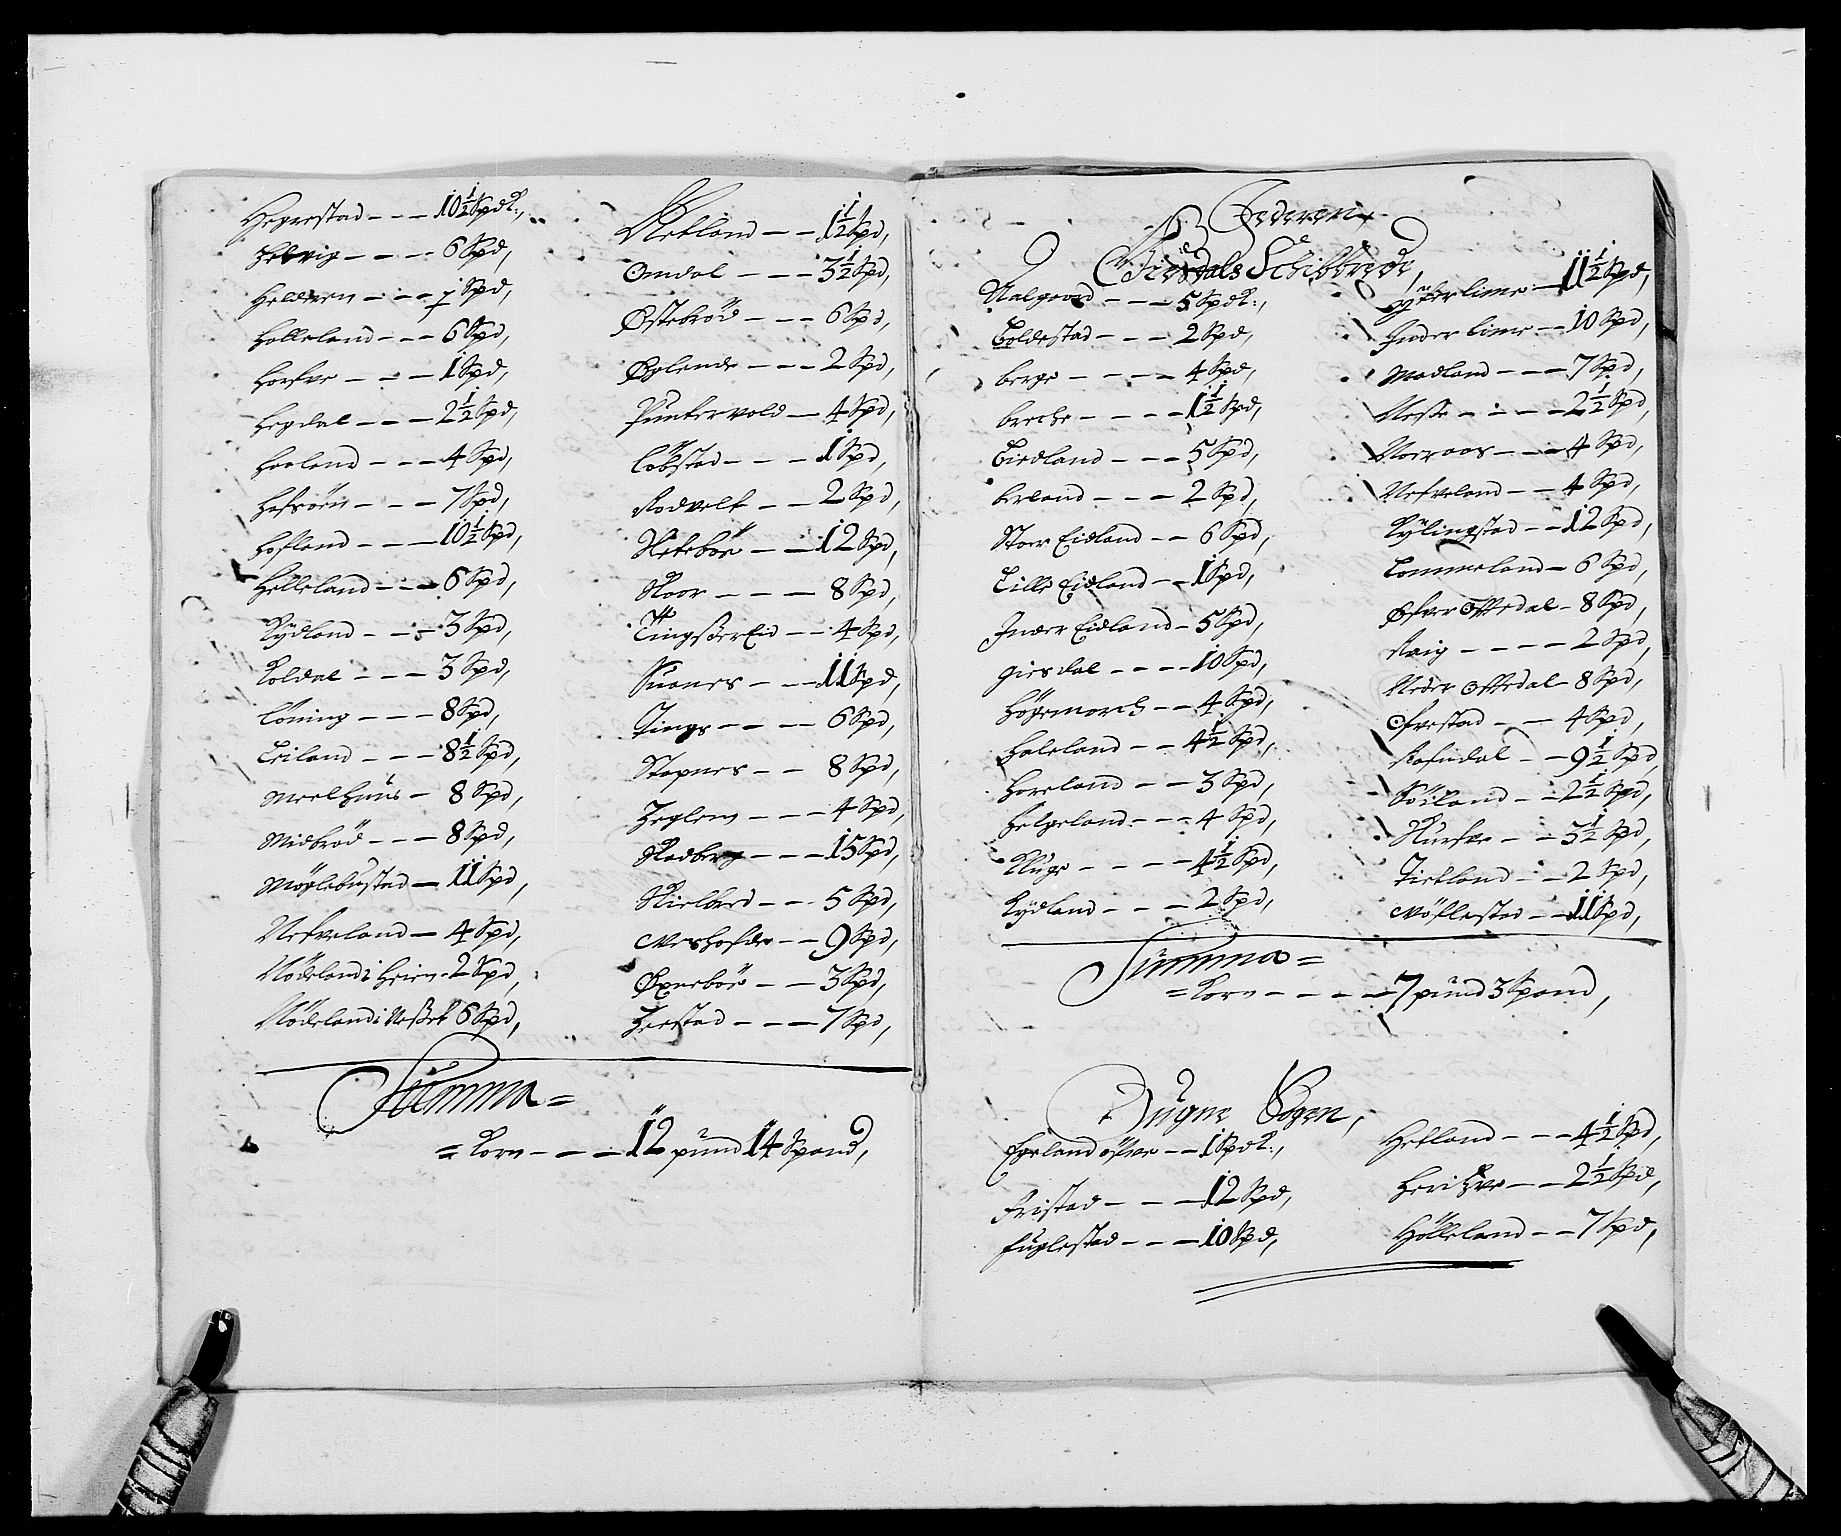 Hegrestad - - - 10 1/2 Spdk:,
Helvig - - - - 6 Spd,
Helleren - - - 7 Spd,
Holleland - - - 6 Spd,
Horsve - - - 1 Spd,
Hegdal - - - 2 1/2 Spd,
Haaland - - - 4 Spd,
Hafsöen - - - 7 Spd,
Hofland - - - 10 1/2 Spd,
Helleland - - - 6 Spd,
Kydland - - - 3 Spd,
Koldal - - - 3 Spd,
Löning - - - 8 Spd,
Leiland - - - 8 1/2 Spd,
Meelhuus - 8 Spd,
Midbröd - - - 8 Spd,
Möglebustad - 11 Spd,
Netveland - 4 Spd,
Nödeland i Heien - 2 Spd,
Nödeland i Nesset 6 Spd,
Netland - - 1 1/2 Spd,
Omdal - - - 3 1/2 Spd,
Östebröd - - - 6 Spd,
Öglende - - - 2 Spd,
Puntervold - 4 Spd,
Löbstad - - - 1 Spd,
Rodvelt - - 2 Spd,
Sleteböe - - 12 Spd,
Skoor - - - - 8 Spd,
Tingsßer Eid - - 4 Spd,
Suanes - - 11 Spd,
Tings - - - - 6 Spd,
Stapnes - - 8 Spd,
Teglem - - - 4 Spd,
Stadberg - - - 15 Spd,
Skielbred - - - 5 Spd,
Veshofde - - 9 Spd,
Öxneböe - - 3 Spd,
Terstad - - - 7 Spd,
Summa =
= Korn - - - 12 pund 14 Spand,
Jederen
Giesdals Schibbrede,
Aalgaard - - - 5 Spdk:,
Boldestad - - - 2 Spd,
Berge - - - - 4 Spd,
Breche - - - - 1 1/2 Spd,
Eiedland - - - 5 Spd,
Erland - - - 2 Spd,
Stoer Eidland - - 6 Spd,
Lille Eidland - - 1 Spd,
Inder Eidland - 5 Spd,
Giesdal - - - - 10 Spd,
Högemorch - - 4 Spd,
Haleland - - 4 1/2 Spd,
Horeland - - 3 Spd,
Helgeland - - - 4 Spd,
Kluge - - - - 4 1/2 Spd,
Kydland - - - 2 Spd,
Ytterlime - 11 1/2 Spd,
Inder Lime - - 10 Spd,
Madland - - - 7 Spd,
Nesse - - - - 2 1/2 Spd,
Noeraas - - - 4 Spd,
Netveland - - 4 Spd,
Kylingstad - - 12 Spd,
Lommeland - 6 Spd,
Öfver Oftedal - 8 Spd,
Raig - - - - 2 Spd,
Neder Oftedal - 8 Spd,
Ofvestad - - 4 Spd,
Rafndal - - 9 1/2 Spd,
Söiland - - 2 1/2 Spd,
Skurfve - - 3 1/2 Spd,
Tietland - - 2 Spd,
Vöflestad - - 11 Spd,
Summa =
= Korn - - - - - 7 pund 3 Spand,
Ougne Sogen,
Egeland öfvre - - 1 Spdk:,
Fristad - - - 12 Spd,
Fuglestad - - - 10 Spd,
Hetland - - - 4 1/2 Spd,
Herichve - - 2 1/2 Spd,
Hölleland - - 7 Spd,